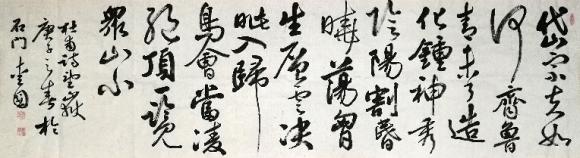 岱宗夫如
何齊魯
青未了造
化鍾神秀
陰陽割昏
曉蕩胸
生層雲決
眥入歸
鳥會當凌
絕頂一覽
眾山小
杜甫詩望嶽
庚子之春於
石门